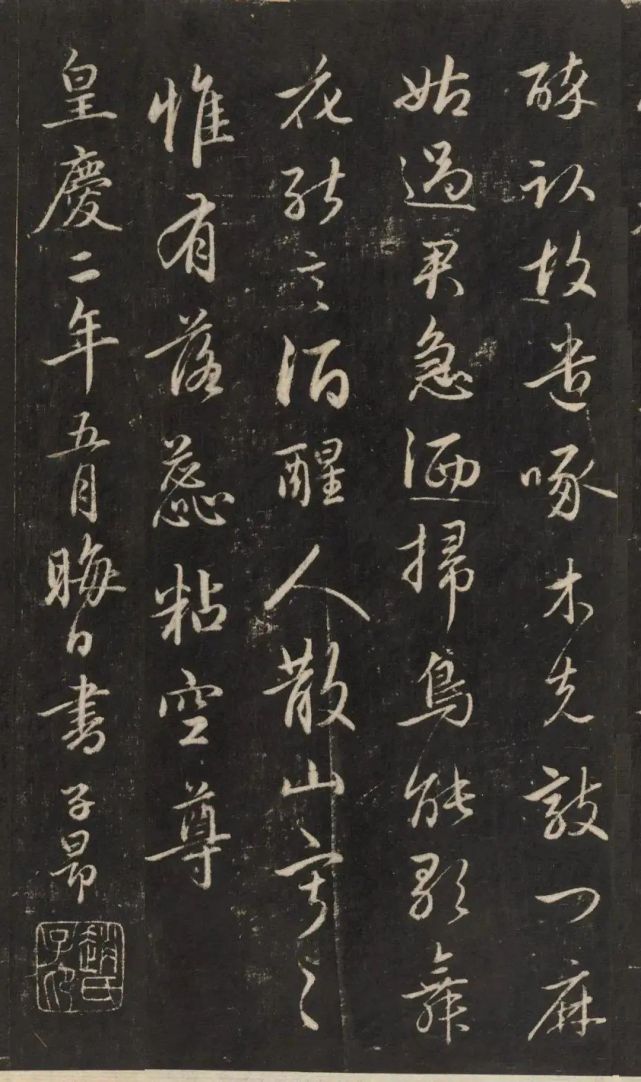 醉臥故遣啄木先敲門麻
姑過君急洒掃鳥能歌舞
花能言酒醒人散山寂〻
惟有落蕊粘空尊
皇慶二年五月晦日書 子昂
趙氏子昂